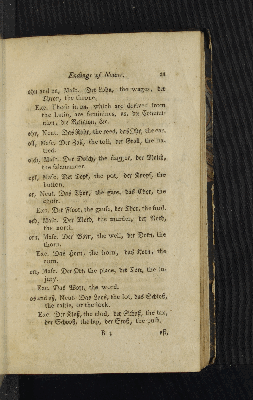 Endings of Nouns. 21
ohn and on, Masc. Der Lohn, the wages, der
Thron, the throne,
Exc. Those in on, which are derived from
the Latin, are feminines, as, die Commu-
nion, die Religion, &c.
ohr, Neut. Das Rohr, the reed, das Ohr, the ear.
oll, Masc. Der Zoll, the toll, der Groll, the ha-
tred.
olch, Masc. Der Dolch, the dagger, der Molch,
the salamander.
opf, Masc. Der Topf, the pot, der Knopf, the
button.
or, Neut. Das Thor, the gate, das Chor, the
choir.
Exc. Der Floor, the gauze, der Thor, the fool.
ord, Masc. Der Mord, the murder, der Nord,
the north.
orn, Masc. Der Born, the well, der Dorn, the
thorn.
Exc. Das Horn, the horn, das Korn, the
corn.
ort, Masc. Der Ort, the place, der Tort, the in-
jury.
Exc. Das Wort, the word.
os and oß, Neut. Das Loos, the lot, das Schloß,
the castle, or the lock.
Exc. Der Kloß, the clod, der Schoß, the tax,
der Schooß, the lap, der Stoß, the push.
B 3 ost,